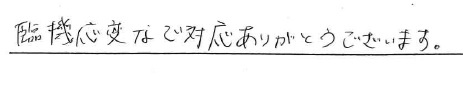 臨機応変なご対応ありがとうございます。